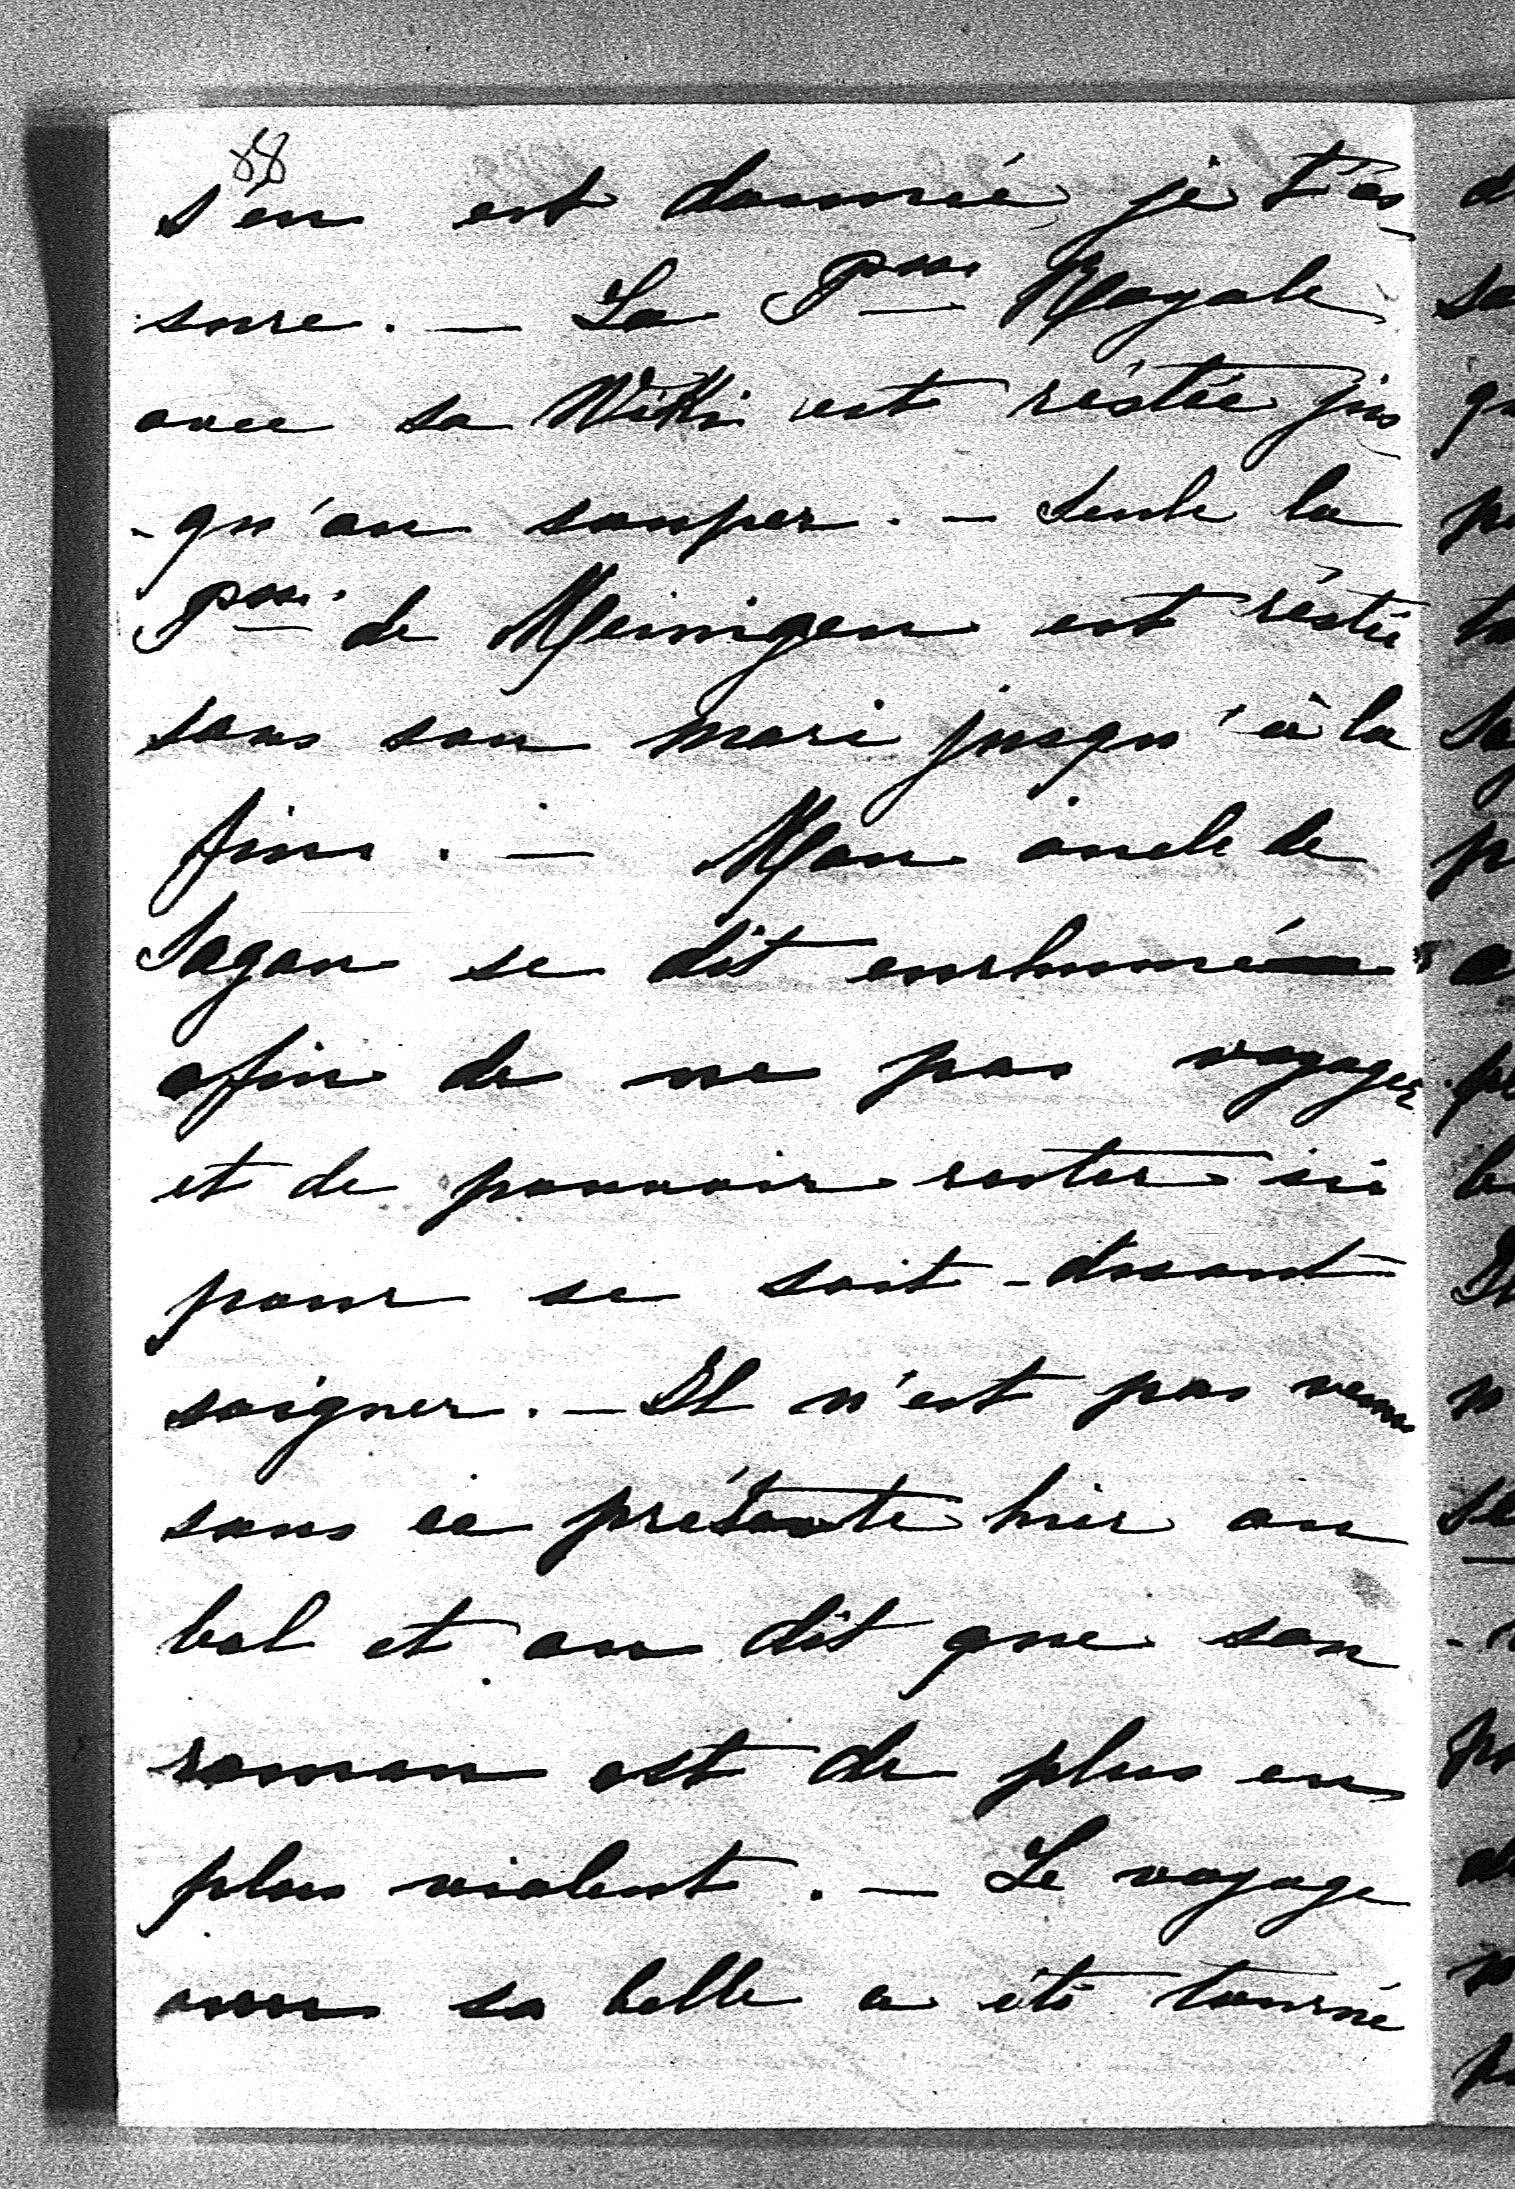 88
s'en est donnée je t'as
sure. — La Psse Royale
avec sa Wikki est réstée jus
-qu'au souper. — Seule la
Psse. de Meinigen est réstée
sans son mari jusqu'à la
fin. — Mon oncle de
Sagan se dit enrhumé
afin de ne pas voyager
et de pouvoir rester ici
pour se soit-disant
soigner. — Il n'est pas venu
sous ce prétexte hier au
bal et on dit que son
roman est de plus en
plus violent. — Le voyage
avec sa belle a été tourné